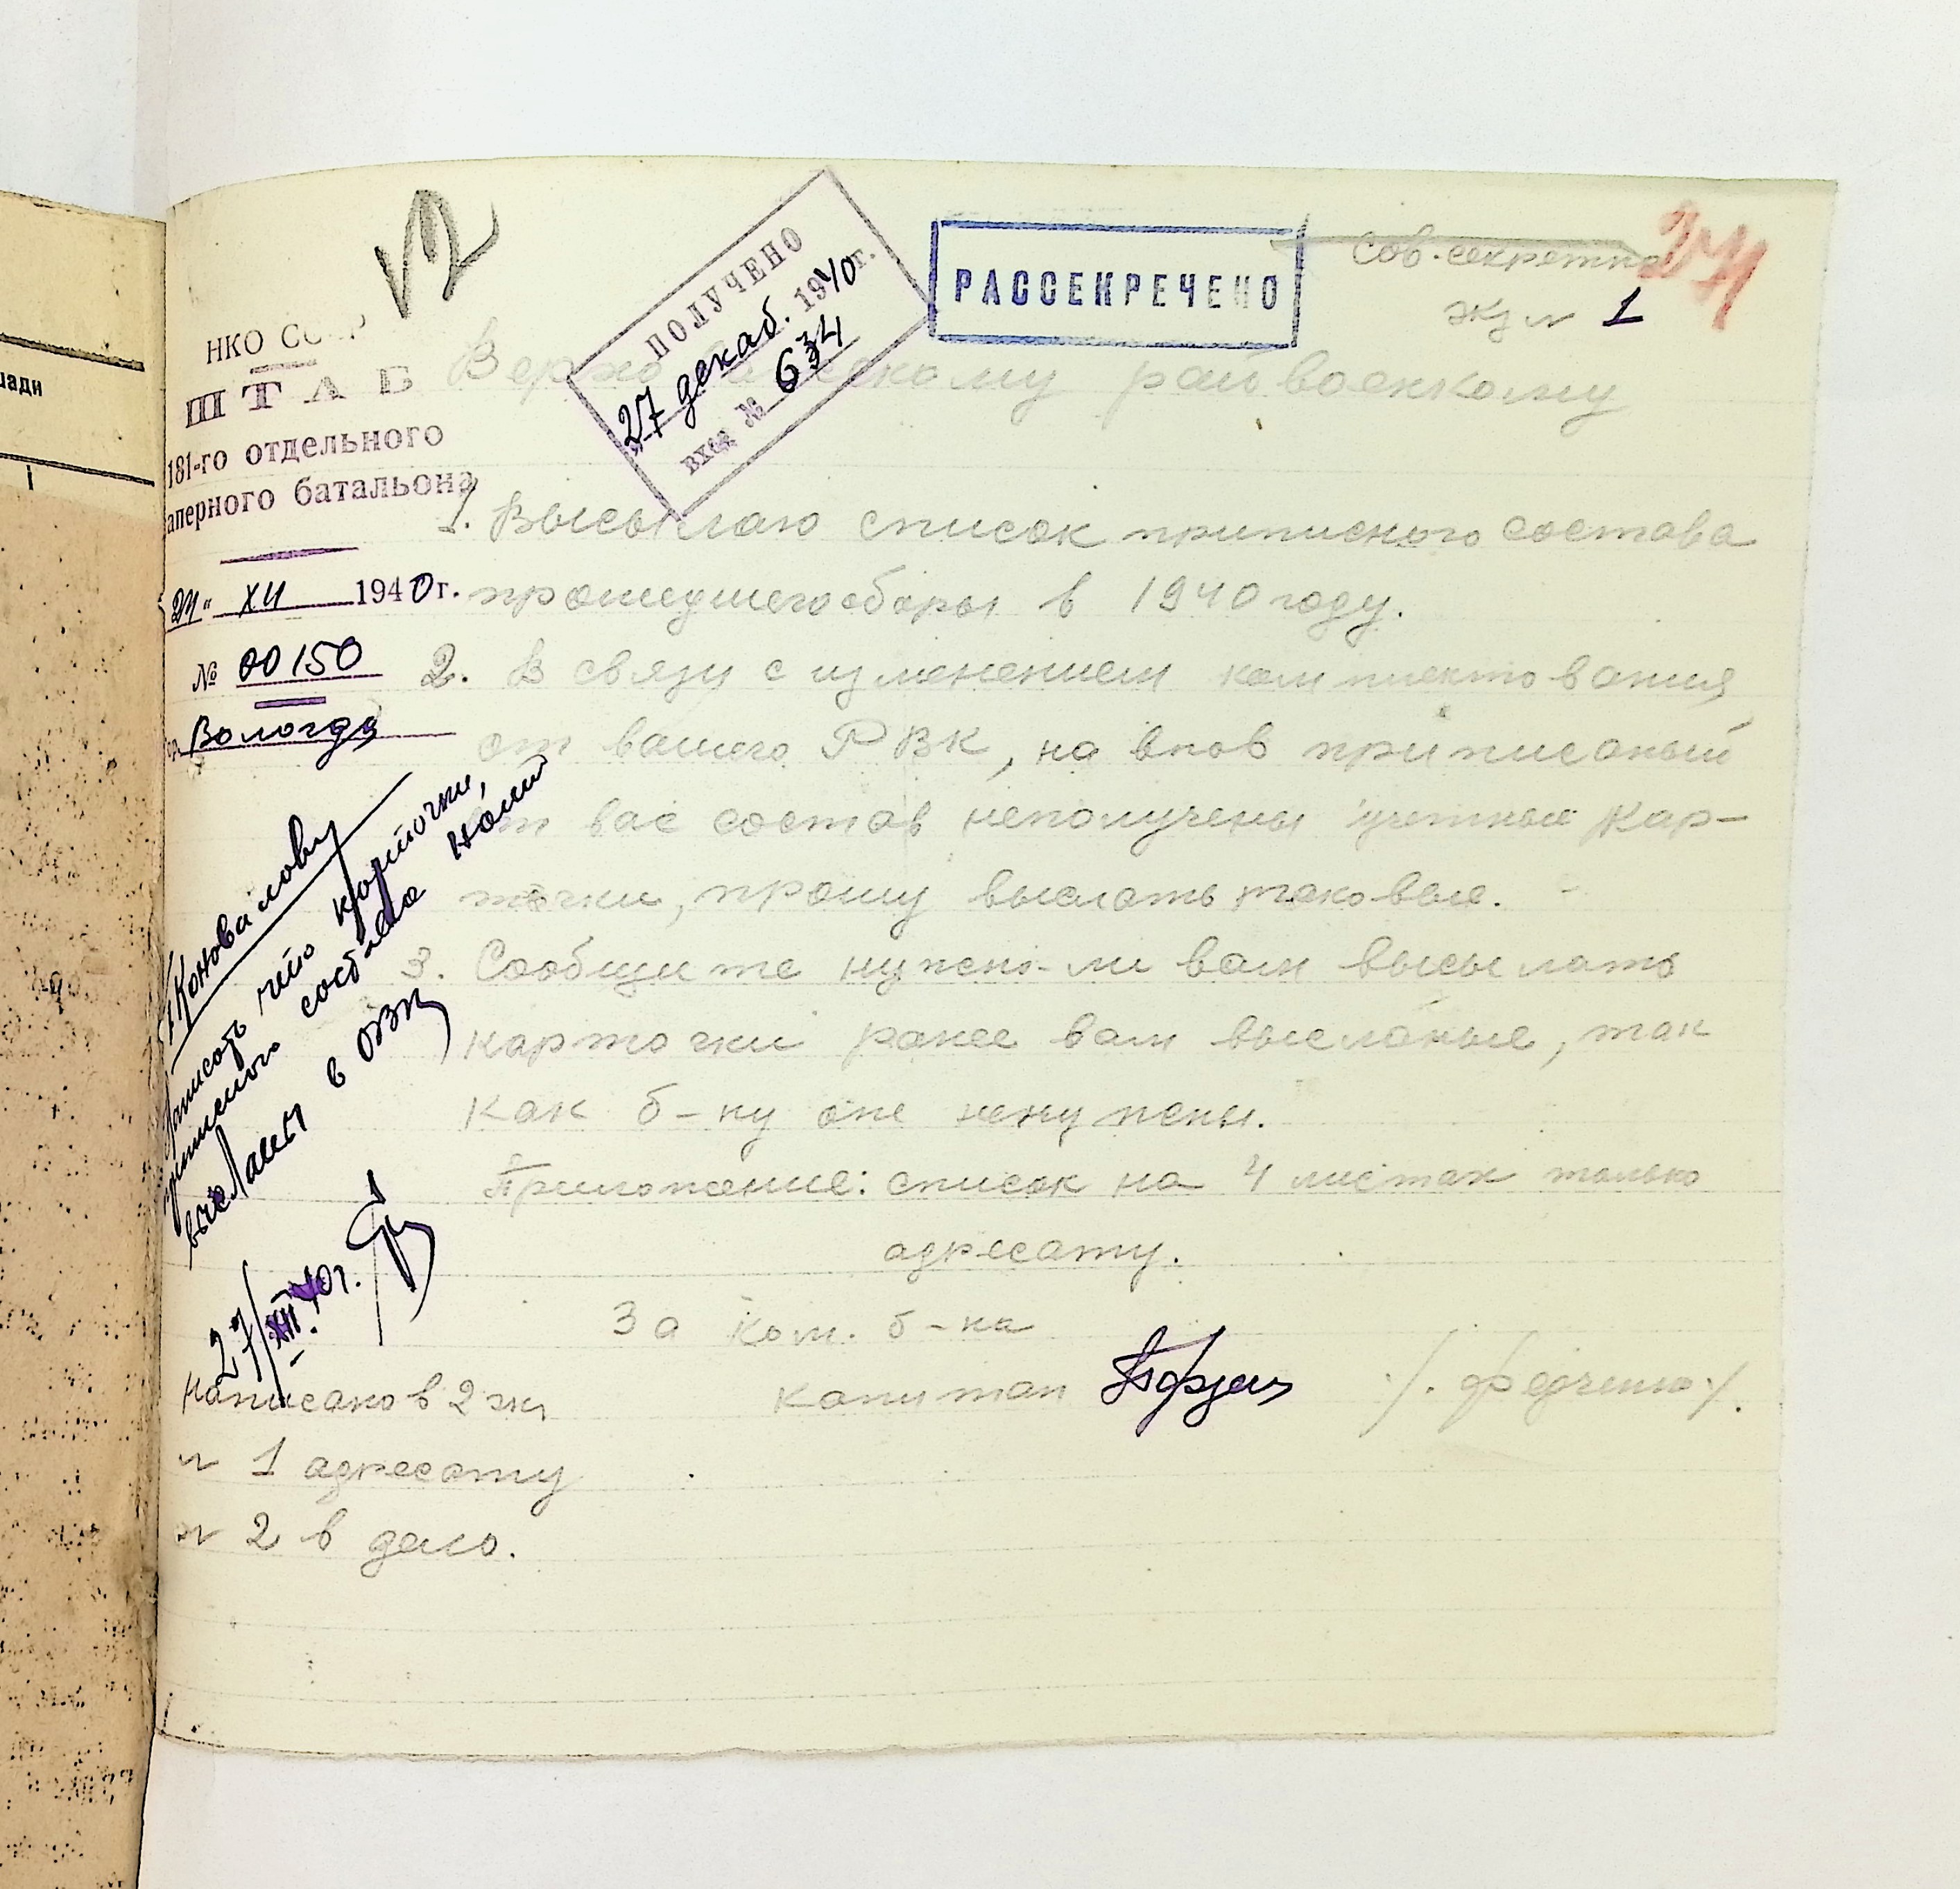 Сов.секретно
24
экз № 1
12
РАССЕКРЕЧЕНО
ПОЛУЧЕНО
27 декаб. 1940г.
вход № 634
НКО СССР
ШТАБ
181-го отдельного
саперного батальона
24" XII 1940г.
№ 00150
гор. Вологда
райвоенкому
1. Высылаю список приписного состава
прошедшего сборы в 1940 году.
2. В связи с изменением комплектования
от вашего РВК, на внов приписаный
от вас состав неполучены учетные кар-
точки, прошу выслать таковые.
3. Сообщите нужно-ли вам высылать
карточки ранее вам высланые, так
как б-ну оне ненужены.
Приложение: список на 4 листах только
адресату.
За ком. б-на
капитан /. Федченко /.
т Коновалову
написать что карточки,
приписного состава нами
высланы в ОВК
27/XII 40г.
Написано в 2 экз
№ 1 адресату
№ 2 в дело.
шади
1